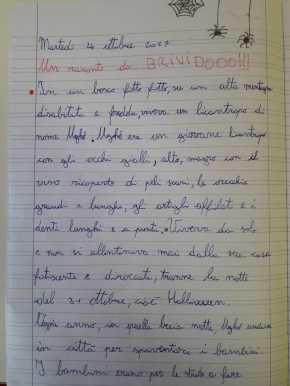 Martedì 4 ottobre 2017
Un racconto da... BRIVIDOOO!!!
In un bosco fitto fitto, su un' alta montagna
disabitata e fredda, viveva un licantropo di
nome Ughò. Ughò era un giovane licantropo
con gli occhi gialli, alto, magro con il
viso ricoperto di peli scuri, le orecchie
grandi e lunghe, gli artigli affilati e i
denti lunghi e a punta. Viveva da solo
e non si allontanava mai dalla sua casa
fatiscente e diroccata, tranne la notte
del 31 ottobre, cioè Halloween.
Ogni anno, in quella buia notte, Ughò andava
in città per spaventare i bambini.
I bambini erano per le strade a fare